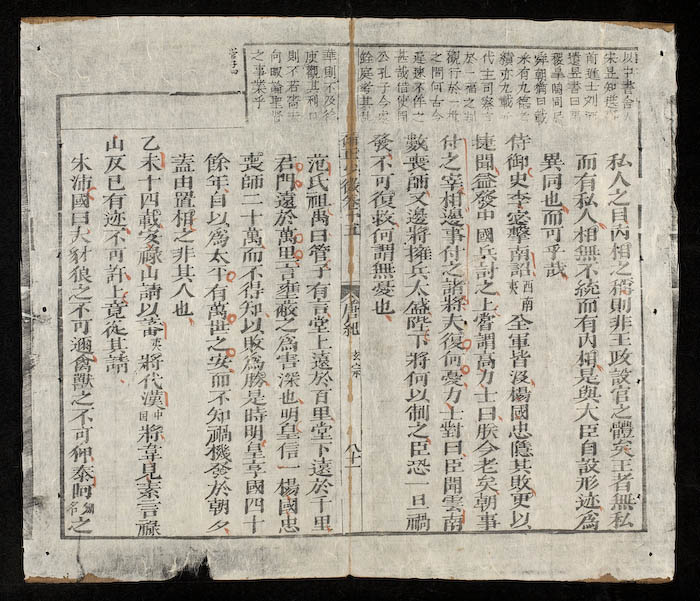 以中書舍人
宋昱知選事
前進士劉迺
遺昱書曰禹
稷皐陶同居
舜朝猶曰載
采有九德考
績亦九載近
代主司察言
於一幅之判
觀行於一揖
之間何古今
遲速不侔之
甚哉借使周
公孔子今處
銓庭考其辭
華則不及徐
庾觀其利口
則不若嗇夫
何暇論聖賢
之事業乎
私人之目內相之稱則非王政設官之體矣王者無私
而有私人相無不統而有內相是與大臣自設形迹為
異同也而可乎哉
侍御史李宓擊南詔西南夷全軍皆沒楊國忠隱其敗更以
捷聞益發中國兵討之上嘗謂高力士曰朕今老矣朝事
付之宰相邊事付之諸將夫復何憂力士對曰臣聞雲南
數喪師又邊將擁兵太盛陛下將何以制之臣恐一旦禍
發不可復救何謂無憂也
卷十五 唐紀 玄宗 八十一
范氏祖禹曰管子有言堂上遠於百里堂下遠於千里
君門遠於萬里言壅蔽之為害深也明皇信一楊國忠
喪師二十萬而不得知以敗為勝是時明皇享國四十
餘年自以為太平有萬世之安而不知禍機發於朝夕
蓋由置相之非其人也
乙未十四載安祿山請以蕃夷將代漢中國將韋見素言祿
山反已有迹不可許上竟從其請
朱浦國曰犬豺狼之不可邇禽獸之不可仰泰阿劍名之